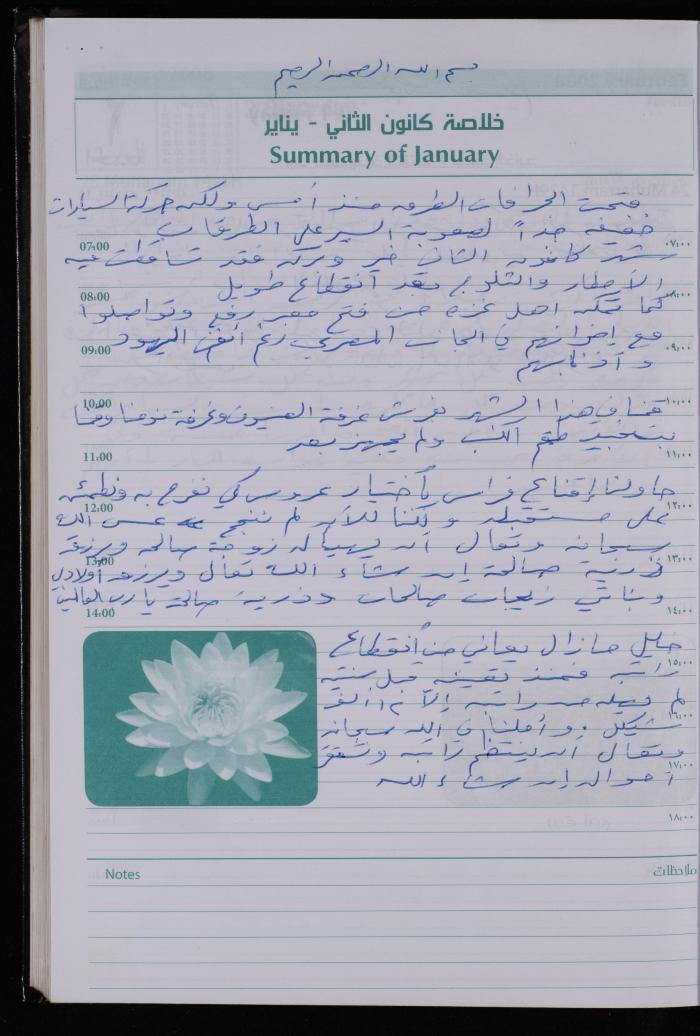 بسم الله الرحمن الرحيم
خلاصة كانون الثاني - يناير
Summary of January
فتحت الجرافات الطرق منذ أمس ولكن حركة السيارات
خفيفة جداً لصعوبة السير على الطرقات
07:00 ٠٧:٠٠
شهر كانون الثاني خير وبركة فقد تساقطت فيه
الأمطار والثلوج بعد انقطاع طويل
08:00 ٠٨:٠٠
كما تمكن اهل غزة من فتح معبر رفح وتواصلوا
مع إخوانهم في الجانب المصري رغم أنف اليهود
09:00 ٠٩:٠٠
وأذنابهم
10:00 ١٠:٠٠
قمنا في هذا الشهر بفرش غرفة الضيوف وغرفة نومنا وقمنا
بتنجيد طقم الكنب ولم يجهز بعد
11:00 ١١:٠٠
حاولنا إقناع فراس باختيار عروس كي نفرح به ونطمئن
12:00 ١٢:٠٠
على مستقبله ولكننا للآن لم ننجح عسى الله
سبحانه وتعالى أن يهيأ له زوجة صالحة ويرزقه
13:00 ١٣:٠٠
ذرية صالحة إن شاء الله تعالى ويرزق أولادي
وبناتي زيجات صالحات وذرية صالحة يا رب العالمين
14:00 ١٤:٠٠
خليل مازال يعاني من انقطاع
١٥:٠٠
راتبه فمنذ تعيينه قبل سنتين
لم يصله من راتبه إلا ٢٠ ألف
١٦:٠٠
شيكل وأملنا في الله سبحانه
وتعالى أن ينتظم راتبه وتستقر
١٧:٠٠
أحواله إن شاء الله
١٨:٠٠
Notes ملاحظات